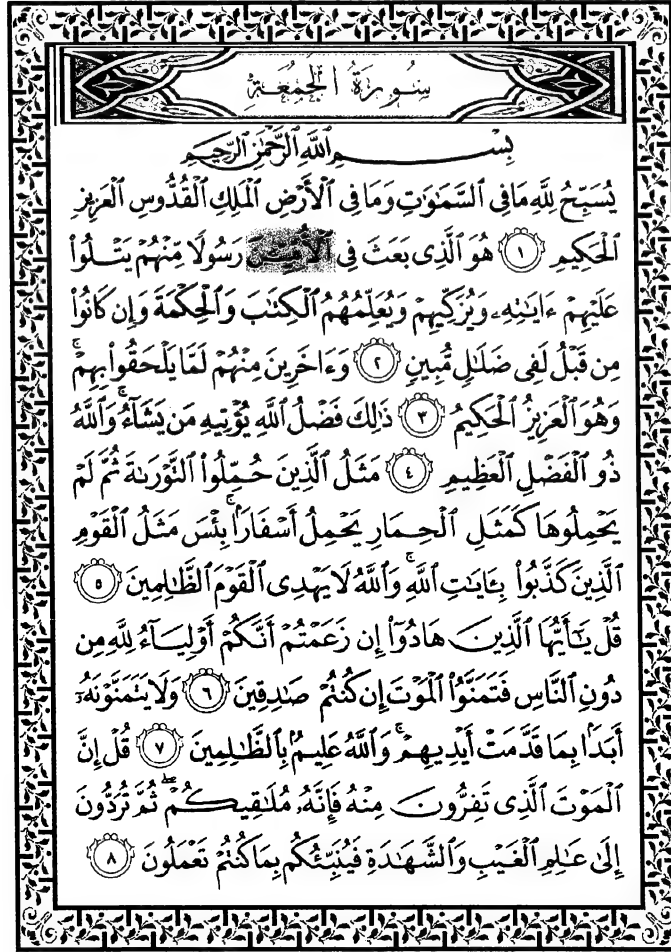 سُورَةُ الْجُمُعَةِ
بِسْمِ ٱللَّهِ ٱلرَّحْمَٰنِ ٱلرَّحِيمِ
يُسَبِّحُ لِلَّهِ مَا فِى ٱلسَّمَٰوَٰتِ وَمَا فِى ٱلْأَرْضِ ٱلْمَلِكِ ٱلْقُدُّوسِ ٱلْعَزِيزِ
ٱلْحَكِيمِ ١ هُوَ ٱلَّذِى بَعَثَ فِى ٱلْأُمِّيِّـۧنَ رَسُولًا مِّنْهُمْ يَتْلُوا۟
عَلَيْهِمْ ءَايَٰتِهِۦ وَيُزَكِّيهِمْ وَيُعَلِّمُهُمُ ٱلْكِتَٰبَ وَٱلْحِكْمَةَ وَإِن كَانُوا۟
مِن قَبْلُ لَفِى ضَلَٰلٍ مُّبِينٍ ٢ وَءَاخَرِينَ مِنْهُمْ لَمَّا يَلْحَقُوا۟ بِهِمْ ۚ
وَهُوَ ٱلْعَزِيزُ ٱلْحَكِيمُ ٣ ذَٰلِكَ فَضْلُ ٱللَّهِ يُؤْتِيهِ مَن يَشَآءُ ۚ وَٱللَّهُ
ذُو ٱلْفَضْلِ ٱلْعَظِيمِ ٤ مَثَلُ ٱلَّذِينَ حُمِّلُوا۟ ٱلتَّوْرَىٰةَ ثُمَّ لَمْ
يَحْمِلُوهَا كَمَثَلِ ٱلْحِمَارِ يَحْمِلُ أَسْفَارًۢا ۚ بِئْسَ مَثَلُ ٱلْقَوْمِ
ٱلَّذِينَ كَذَّبُوا۟ بِـَٔايَٰتِ ٱللَّهِ ۚ وَٱللَّهُ لَا يَهْدِى ٱلْقَوْمَ ٱلظَّٰلِمِينَ ٥
قُلْ يَٰٓأَيُّهَا ٱلَّذِينَ هَادُوٓا۟ إِن زَعَمْتُمْ أَنَّكُمْ أَوْلِيَآءُ لِلَّهِ مِن
دُونِ ٱلنَّاسِ فَتَمَنَّوُا۟ ٱلْمَوْتَ إِن كُنتُمْ صَٰدِقِينَ ٦ وَلَا يَتَمَنَّوْنَهُۥٓ
أَبَدًۢا بِمَا قَدَّمَتْ أَيْدِيهِمْ ۚ وَٱللَّهُ عَلِيمٌۢ بِٱلظَّٰلِمِينَ ٧ قُلْ إِنَّ
ٱلْمَوْتَ ٱلَّذِى تَفِرُّونَ مِنْهُ فَإِنَّهُۥ مُلَٰقِيكُمْ ۖ ثُمَّ تُرَدُّونَ
إِلَىٰ عَٰلِمِ ٱلْغَيْبِ وَٱلشَّهَٰدَةِ فَيُنَبِّئُكُم بِمَا كُنتُمْ تَعْمَلُونَ ٨